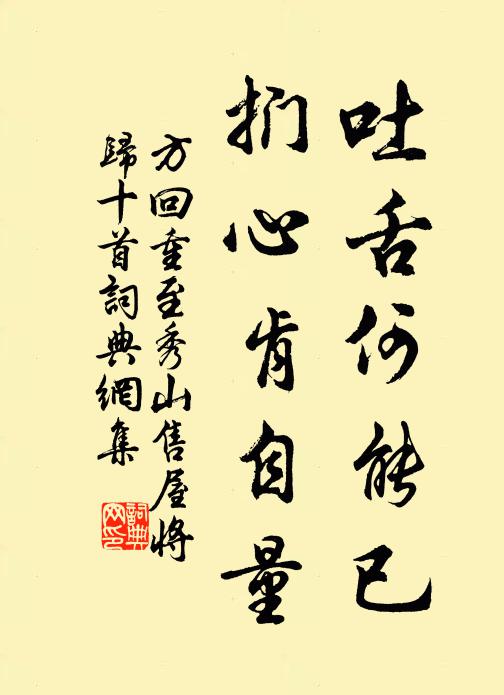 吐舌何能已
捫心肯自量
方回重至秀山售屋將
歸十首詞典網集
詞典
网印